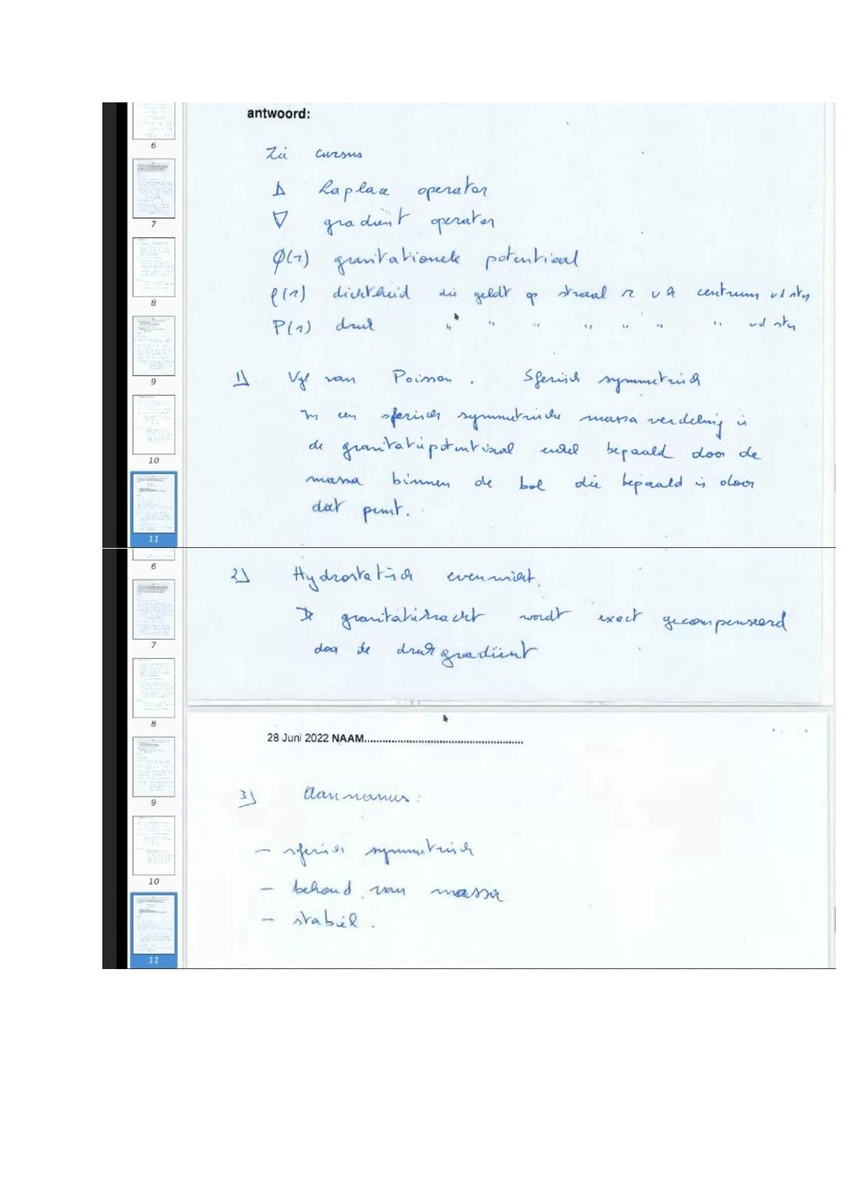 antwoord:
Zie cursus
Δ Laplace operator
∇ gradiënt operator
ϕ(r) gravitationele potentiaal
ρ(r) dichtheid die geldt op straal r v h centrum vd ster
P(r) druk " " " " " " " vd ster
1) Vgl van Poisson. Sferisch symmetrisch
In een sferisch symmetrische massa verdeling is
de gravitatiepotentiaal enkel bepaald door de
massa binnen de bol die bepaald is door
dat punt.
2) Hydrostatisch evenwicht.
De gravitatiekracht wordt exact gecompenseerd
door de drukgradiënt
28 Juni 2022 NAAM.....................................................
3) Aannames:
- sferisch symmetrisch
- behoud van massa
- stabiel.
6
7
8
9
10
11
6
7
8
9
10
11